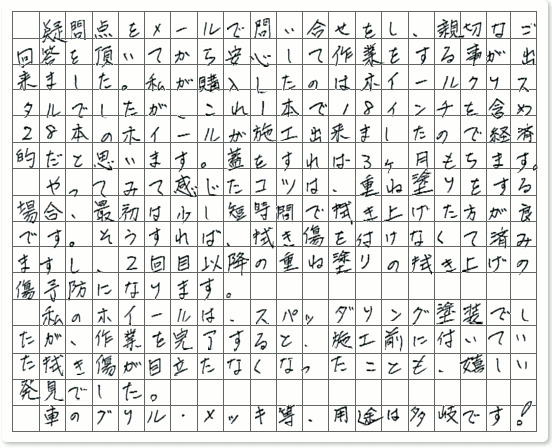 疑問点をメールで問い合せをし、親切なご
回答を頂いてから安心して作業をする事が出
来ました。私が購入したのはホイールクリス
タルでしたが、これ1本で18インチを含め
28本のホイールが施工出来ましたので経済
的だと思います。蓋をすれば3ヶ月もちます。
やってみて感じたコツは、重ね塗りをする
場合、最初は少し短時間で拭き上げた方が良
です。そうすれば、拭き傷を付けなくて済み
ますし、2回目以降の重ね塗りの拭き上げの
傷予防になります。
私のホイールは、スパッタリング塗装でし
たが、作業を完了すると、施工前に付いてい
た拭き傷が目立たなくなったことも、嬉しい
発見でした。
車のグリル・メッキ等、用途は多岐です!